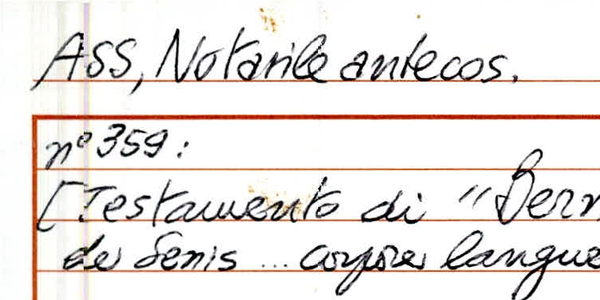 ASS, Notarile antecos.
n° 359:
[Testamento di "Bern
de Senis ... corpore langue